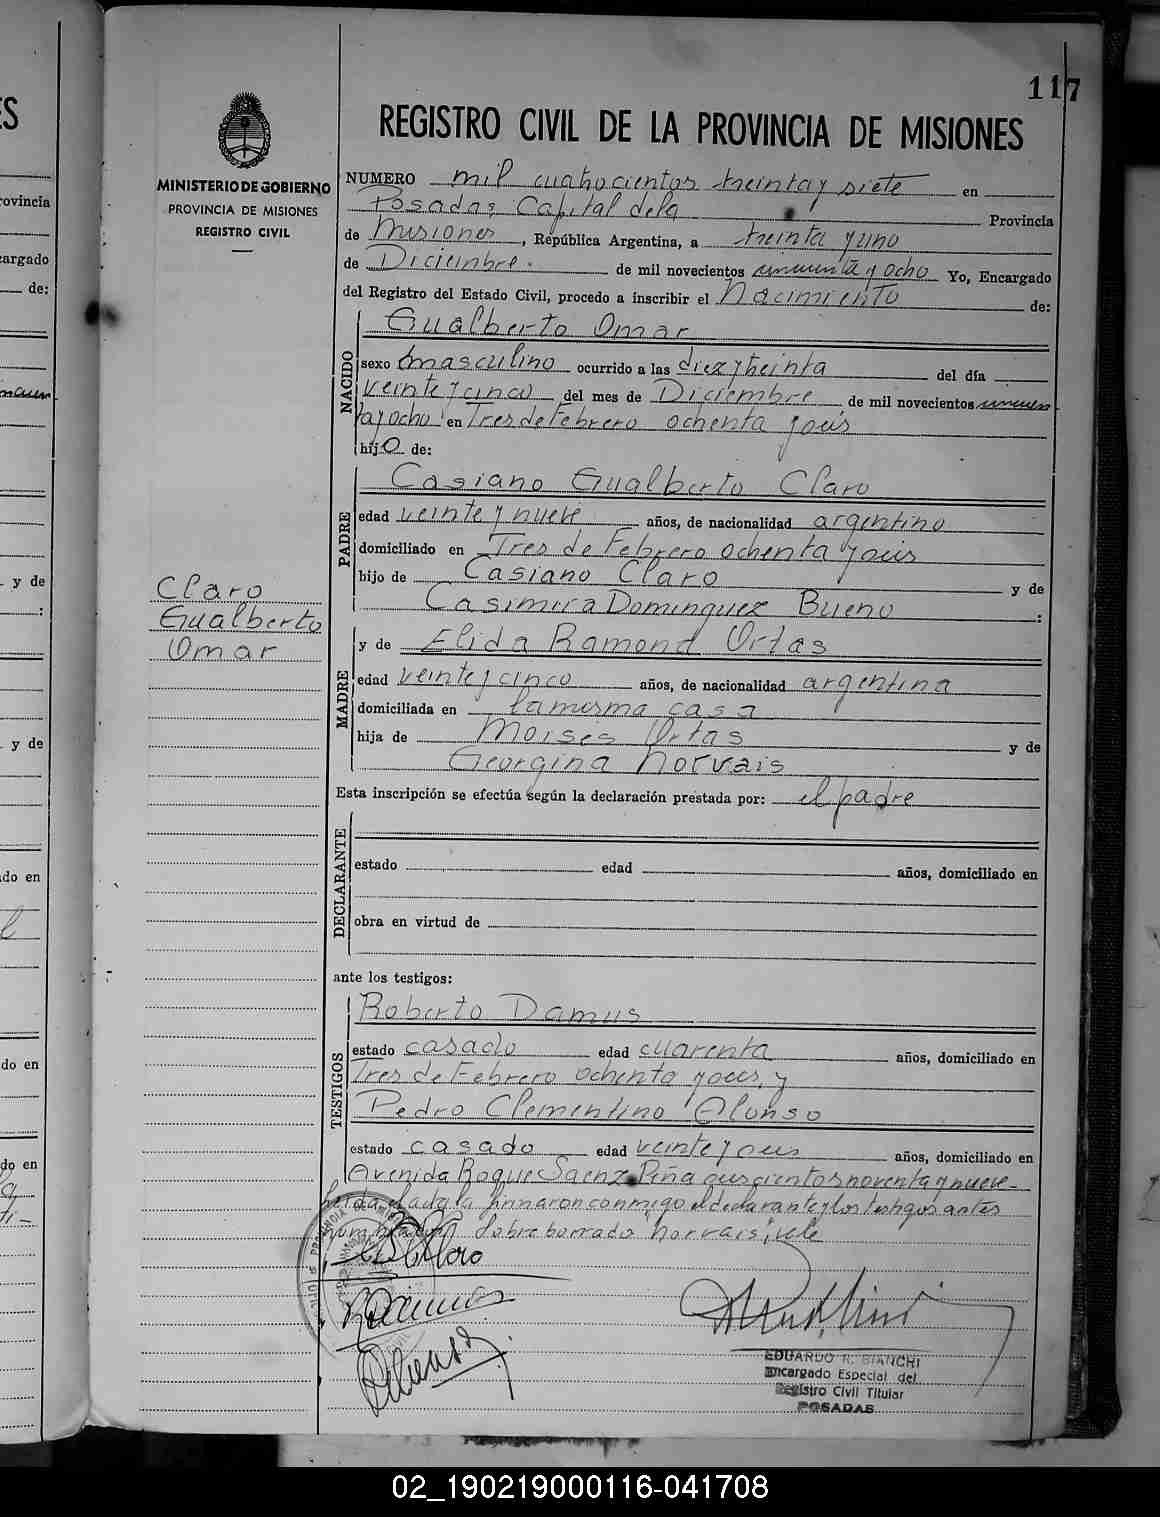 117
REGISTRO CIVIL DE LA PROVINCIA DE MISIONES
MINISTERIO DE GOBIERNO
PROVINCIA DE MISIONES
REGISTRO CIVIL
NUMERO mil cuatrocientos treinta y siete en
Posadas Capital de la Provincia
de Misiones, República Argentina, a treinta y uno
de Diciembre. de mil novecientos cincuenta y ocho Yo, Encargado
del Registro del Estado Civil, procedo a inscribir el Nacimiento de:
NACIDO
Gualberto Omar
sexo masculino ocurrido a las diez y treinta del día
veinte y cinco del mes de Diciembre de mil novecientos cincuen
ta y ocho en Tres de Febrero ochenta y seis
hijo de:
PADRE
Casiano Gualberto Claro
edad veinte y nueve años, de nacionalidad argentino
domiciliado en Tres de Febrero ochenta y seis
hijo de Casiano Claro y de
Casimira Dominguez Bueno :
Claro
Gualberto
Omar
MADRE
y de Elida Ramona Ortas
edad veinte y cinco años, de nacionalidad argentina
domiciliada en la misma casa
hija de Moises Ortas y de
Georgina Norvais
Esta inscripción se efectúa según la declaración prestada por: el padre
DECLARANTE
estado edad años, domiciliado en
obra en virtud de
ante los testigos:
TESTIGOS
Roberto Damus
estado casado edad cuarenta años, domiciliado en
Tres de Febrero ochenta y seis, y
Pedro Clementino Alonso
estado casado edad veinte y seis años, domiciliado en
Avenida Roque Saenz Peña noventa y nueve-
leida el acta la firmaron conmigo el declarante y los testigos antes
Sobre borrado, Norvais, vale
EDUARDO R. BIANCHI
Encargado Especial del
Registro Civil Titular
POSADAS
02_190219000116-041708